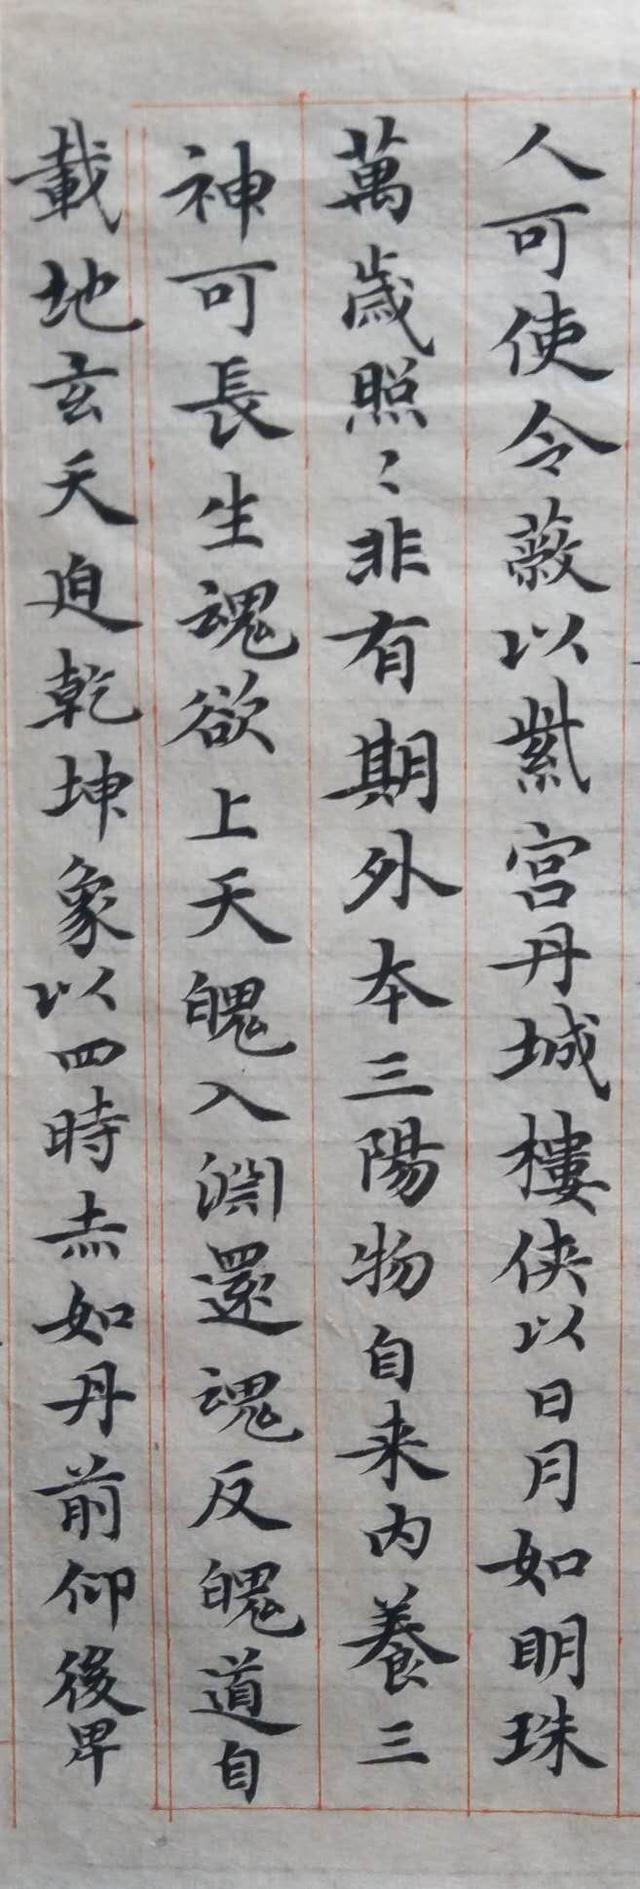 人可使令蔽以紫宮丹城樓俠以日月如明珠
萬歲照〻非有期外本三陽物自来内養三
神可長生魂欲上天魄入淵還魂反魄道自
載地玄天迫乾坤象以四時赤如丹前仰後卑